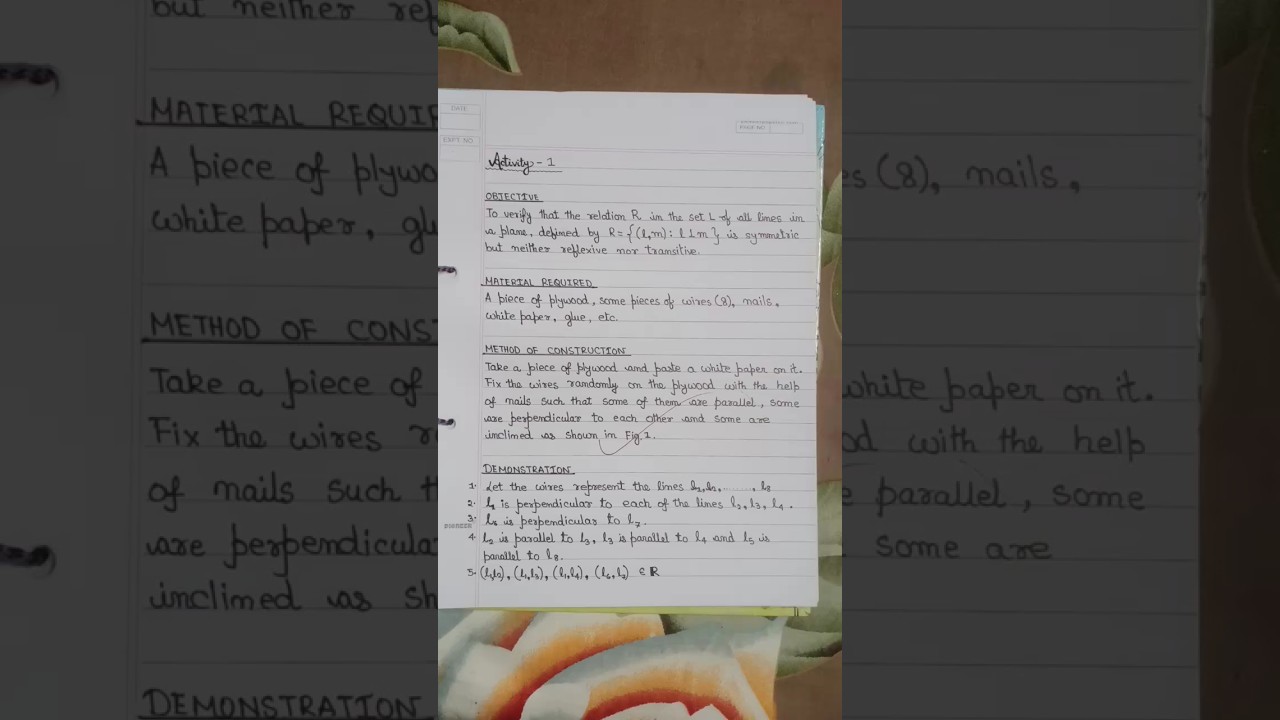 DATE
EXPT. NO.
PAGE NO.
Activity - 1
OBJECTIVE
To verify that the relation R in the set L of all lines in
a plane, defined by R = {(l,m): l ⊥ m} is symmetric
but neither reflexive nor transitive.
MATERIAL REQUIRED
A piece of plywood, some pieces of wires (8), nails,
white paper, glue, etc.
METHOD OF CONSTRUCTION
Take a piece of plywood and paste a white paper on it.
Fix the wires randomly on the plywood with the help
of nails such that some of them are parallel, some
are perpendicular to each other and some are
inclined as shown in Fig.1.
DEMONSTRATION
1. Let the wires represent the lines l₁,l₂,........, l₈
2. l₁ is perpendicular to each of the lines l₂, l₃, l₄.
3. l₆ is perpendicular to l₇.
4. l₂ is parallel to l₃, l₃ is parallel to l₄ and l₅ is
parallel to l₈.
5. (l₁,l₂), (l₁,l₃), (l₁,l₄), (l₆,l₇) ∈ R